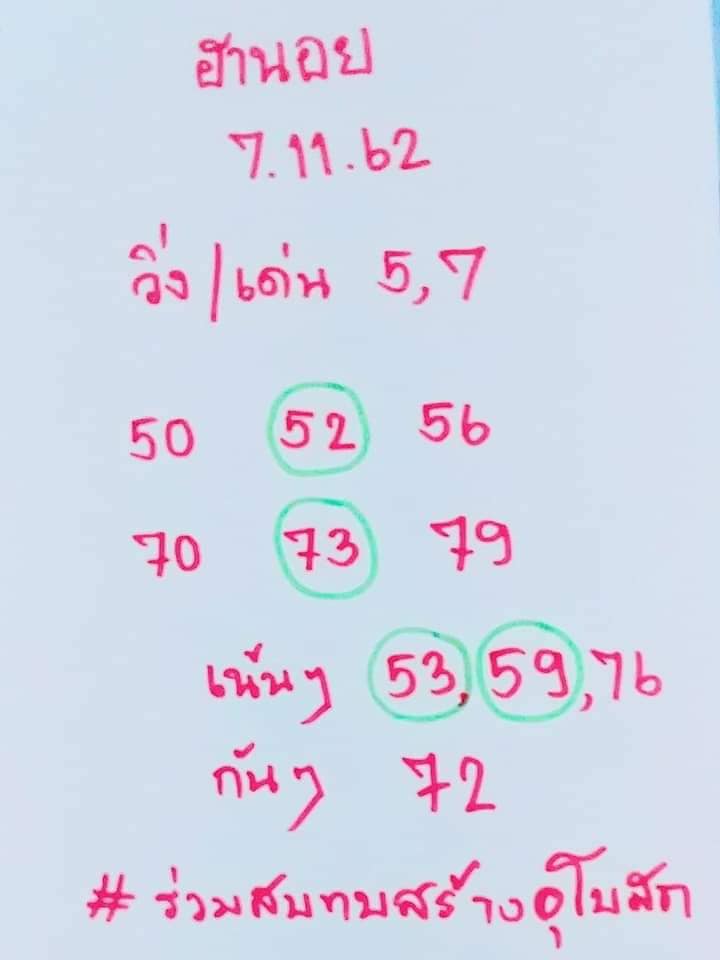 ฮานอย
7.11.62
วิ่ง/เด่น 5,7
50 52 56
70 73 79
เน้นๆ 53,59,76
กันๆ 72
#ร่วมสบทบสร้างอุโบสถ